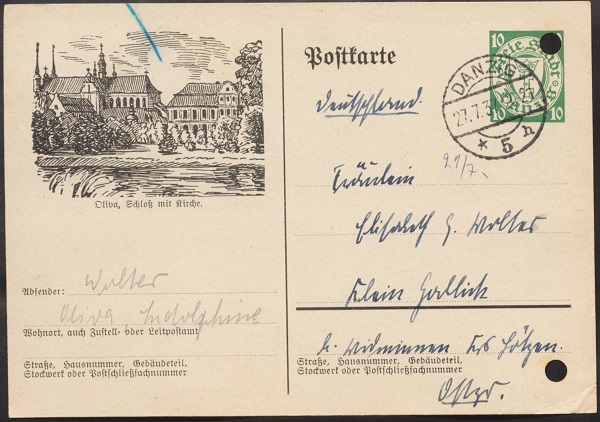 Oliva, Schloß mit Kirche.
Absender: Wolter
Oliva,
Wohnort, auch Zustell- oder Leitpostamt
Straße, Hausnummer, Gebäudeteil,
Stockwerk oder Postschließfachnummer
Postkarte
10
10 10
DANZIG
5 h
Deutschland.
21/7.
Fräulein
Elisabeth Wolter
Klein
b. Widminnen Krs Lötzen.
Straße, Hausnummer, Gebäudeteil,
Stockwerk oder Postschließfachnummer
Ostpr.